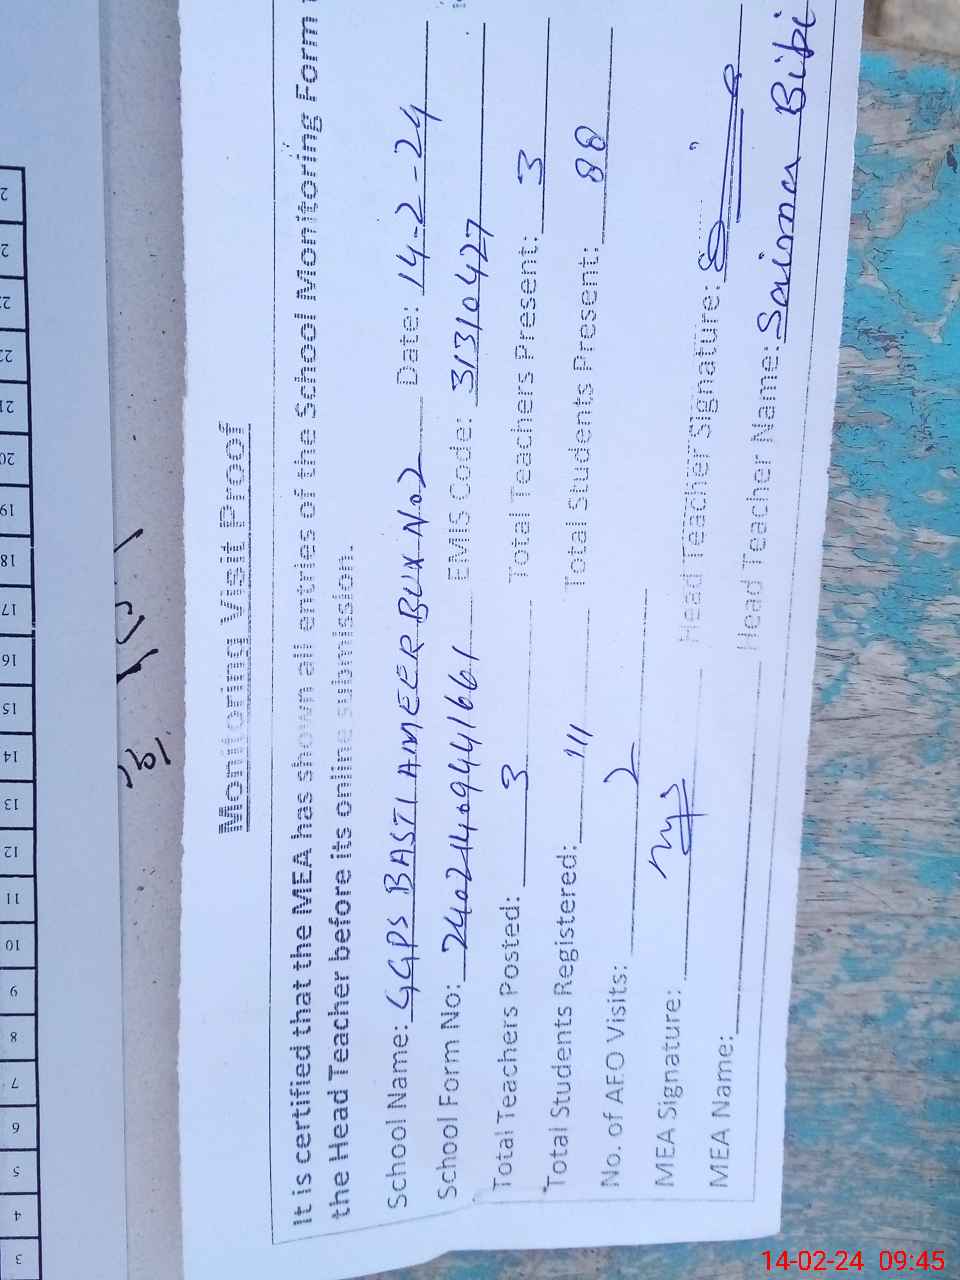 Monitoring Visit Proof
It is certified that the MEA has shown all entries of the School Monitoring Form
the Head Teacher before its online submission.
School Name: GGPS BASTI AMEER BUX No2 Date: 14-2-24
School Form No: 24021409441661 EMIS Code: 31310427
Total Teachers Posted: 3 Total Teachers Present: 3
Total Students Registered: 111 Total Students Present: 88
No. of AEO Visits: 2
MEA Signature: Head Teacher Signature:
MEA Name: Head Teacher Name: Saima Bibi
3 4 5 6 7 8 9 10 11 12 13 14 15 16 17 18 19 20 21 22
14-02-24 09:45